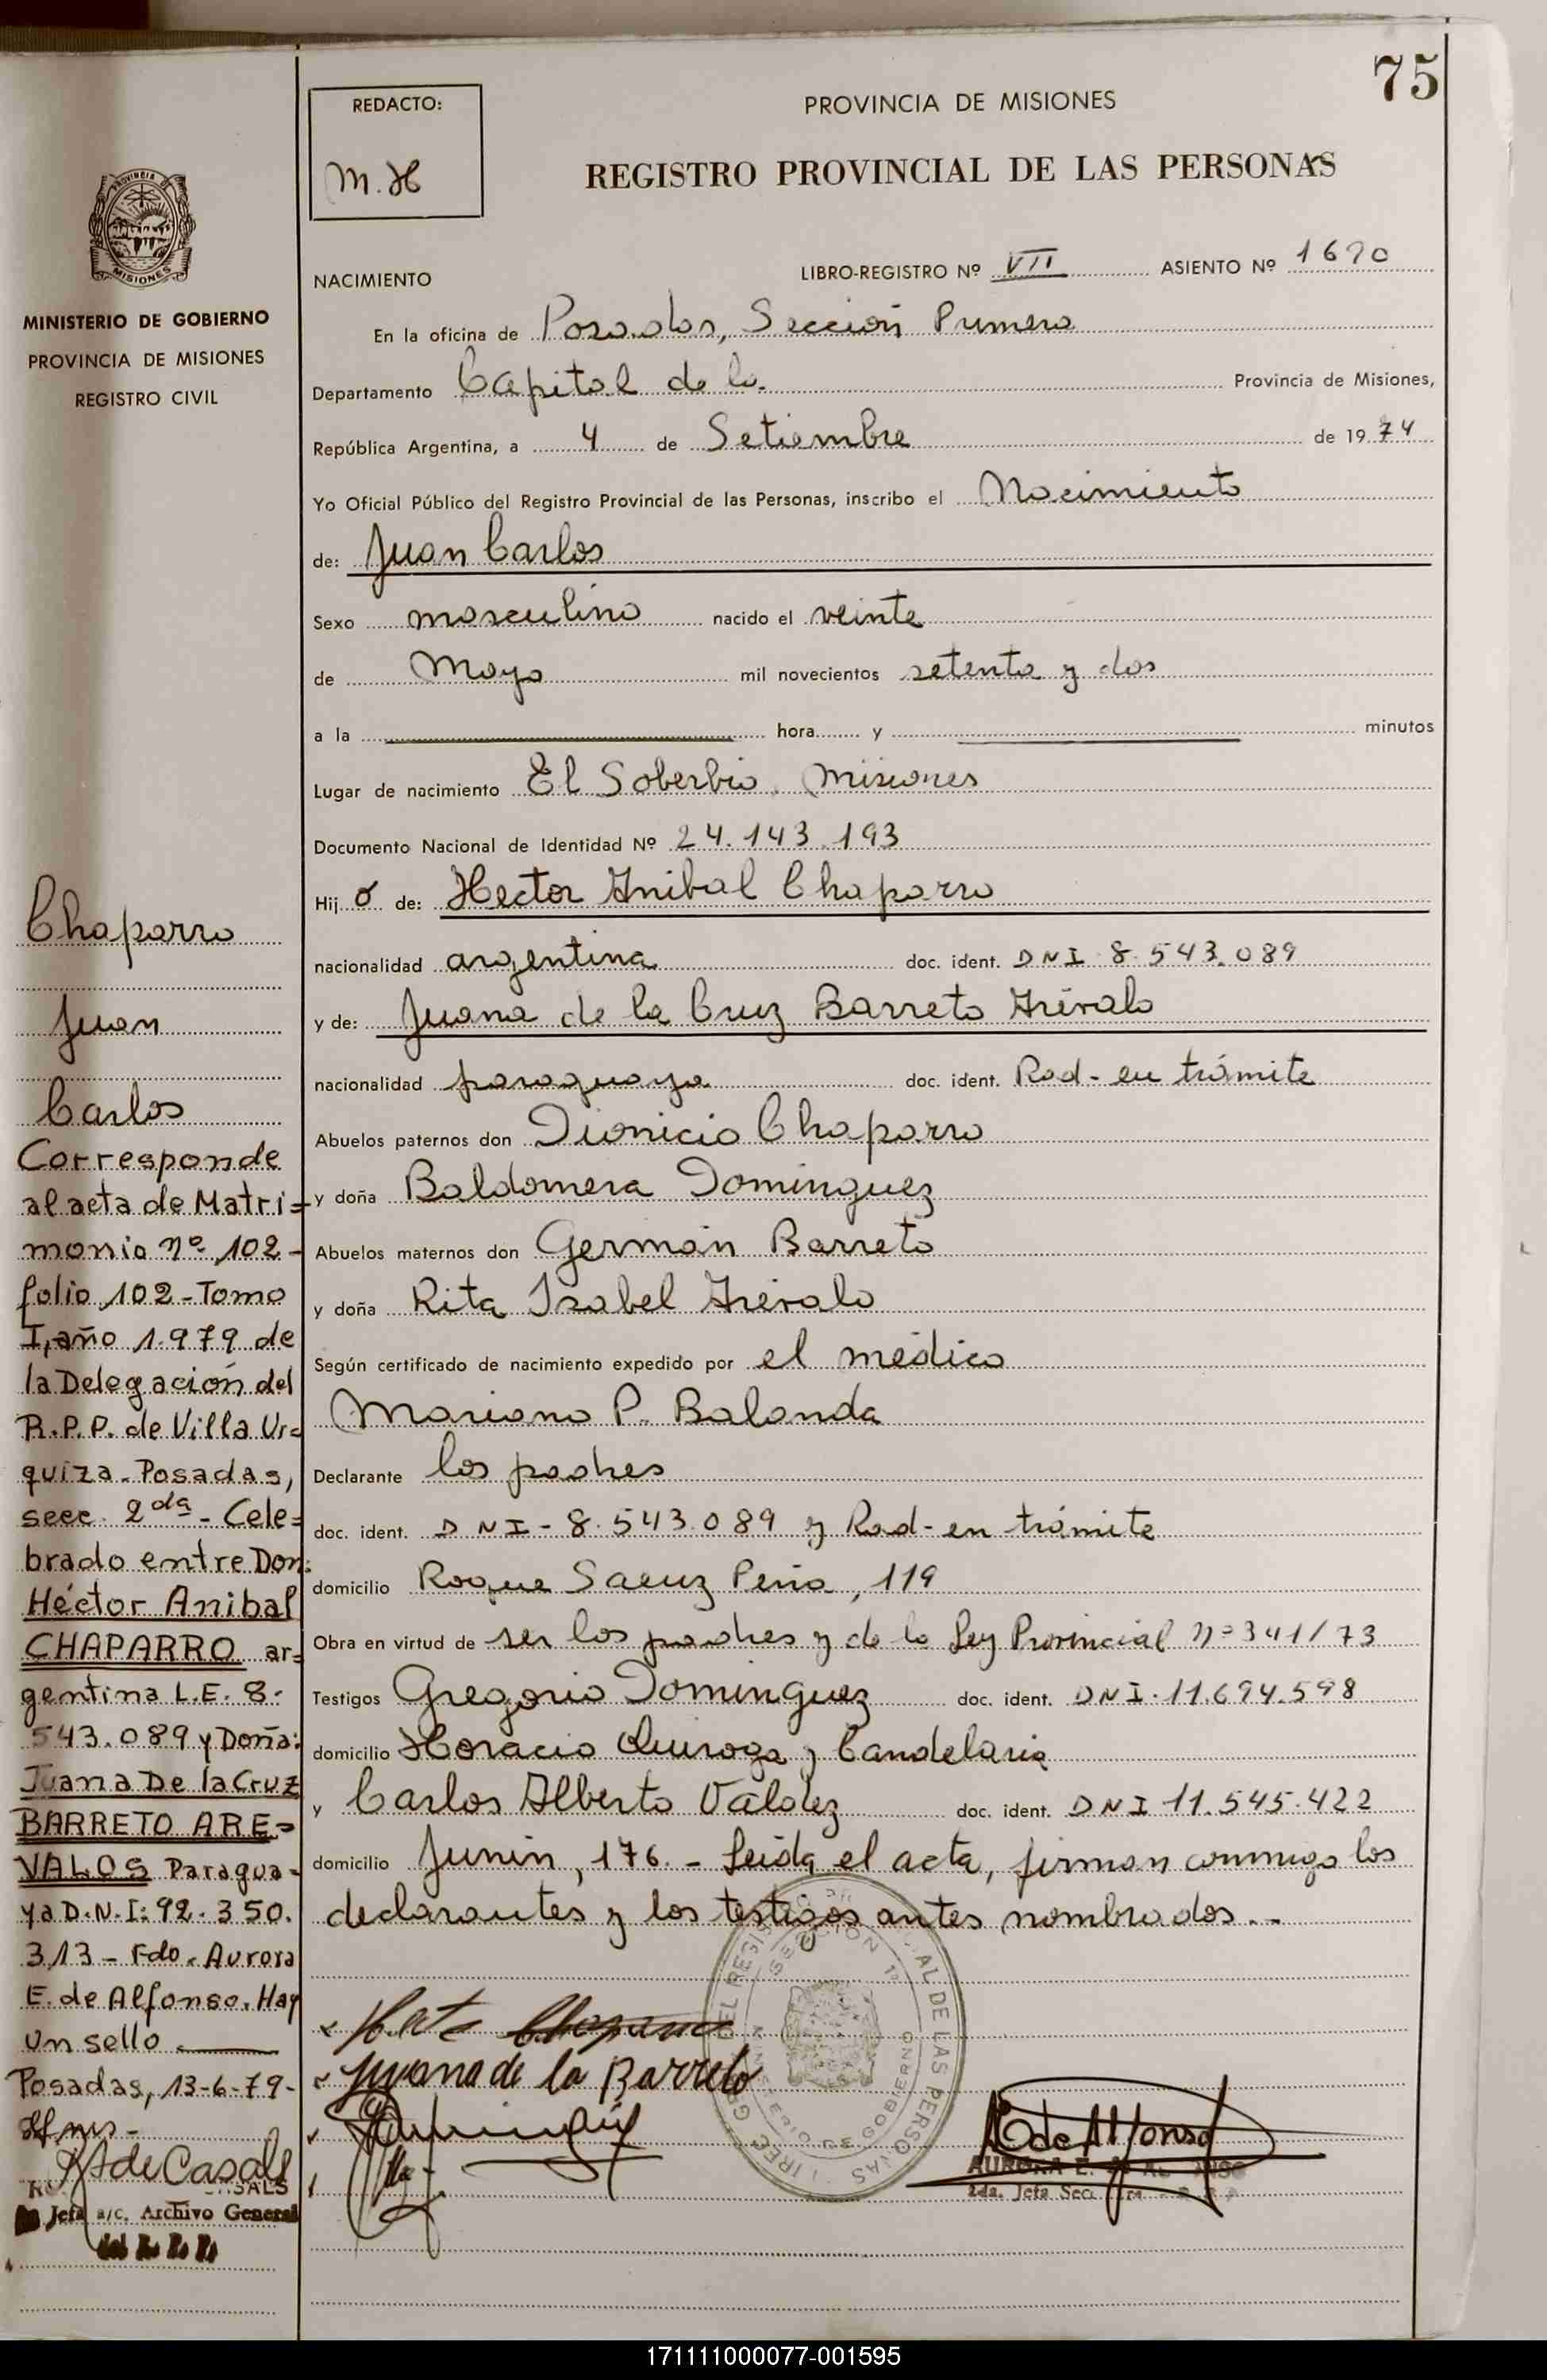 75
REDACTO:
M.H
PROVINCIA DE MISIONES
REGISTRO PROVINCIAL DE LAS PERSONAS
NACIMIENTO
LIBRO-REGISTRO Nº VII ASIENTO Nº 1690
En la oficina de Posadas, Sección Primera
Departamento Capital de la. Provincia de Misiones,
República Argentina, a 4 de Setiembre de 1974
Yo Oficial Público del Registro Provincial de las Personas, inscribo el Nacimiento
de: Juan Carlos
Sexo masculino nacido el veinte
de Mayo mil novecientos setenta y dos
a la hora y minutos
Lugar de nacimiento El Soberbio. Misiones
Documento Nacional de Identidad Nº 24.143.193
Hijo de: Hector Anibal Chaparro
nacionalidad argentina doc. ident. DNI 8.543.089
y de: Juana de la Cruz Barreto Arévalo
nacionalidad paraguaya doc. ident. Rad- en trámite
Abuelos paternos don Dionicio Chaparro
y doña Baldomera Dominguez
Abuelos maternos don Germán Barreto
y doña Rita Isabel Arévalo
Según certificado de nacimiento expedido por el médico
Mariano P. Balanda
Declarante los padres
doc. ident. DNI - 8.543.089 y Rad- en trámite
domicilio Roque Saenz Peña, 119
Obra en virtud de ser los padres y de la Ley Provincial nº 341/73
Testigos Gregorio Dominguez doc. ident. DNI. 11.694.598
domicilio Horacio Quiroga y Candelaria
y Carlos Alberto Valdez doc. ident. DNI 11.545.422
domicilio Junin, 176. - Leida el acta, firman conmigo los
declarantes y los testigos antes nombrados. -
Juana de la Barreto
A E de Alfonso
AURORA E.
2da. Jefa Sec.
SECCION 1ª
MINISTERIO DE GOBIERNO
PROVINCIA DE MISIONES
MINISTERIO DE GOBIERNO
PROVINCIA DE MISIONES
REGISTRO CIVIL
Chaparro
Juan
Carlos
Corresponde
al acta de Matri=
monio nº 102-
folio 102-Tomo
I, año 1.979 de
la Delegación del
R.P.P. de Villa Ur=
quiza-Posadas,
secc. 2da - Cele=
brado entre Don:
Héctor Anibal
CHAPARRO ar=
gentina L.E. 8.
543.089 y Doña:
Juana De la Cruz
BARRETO ARE=
VALOS Paragua=
ya D.N.I: 92.350.
313- Fdo. Aurora
E. de Alfonso. Hay
un sello
Posadas, 13-6-79-
RA de Casals
Jefa a/c. Archivo General
del R. P. P.
171111000077-001595